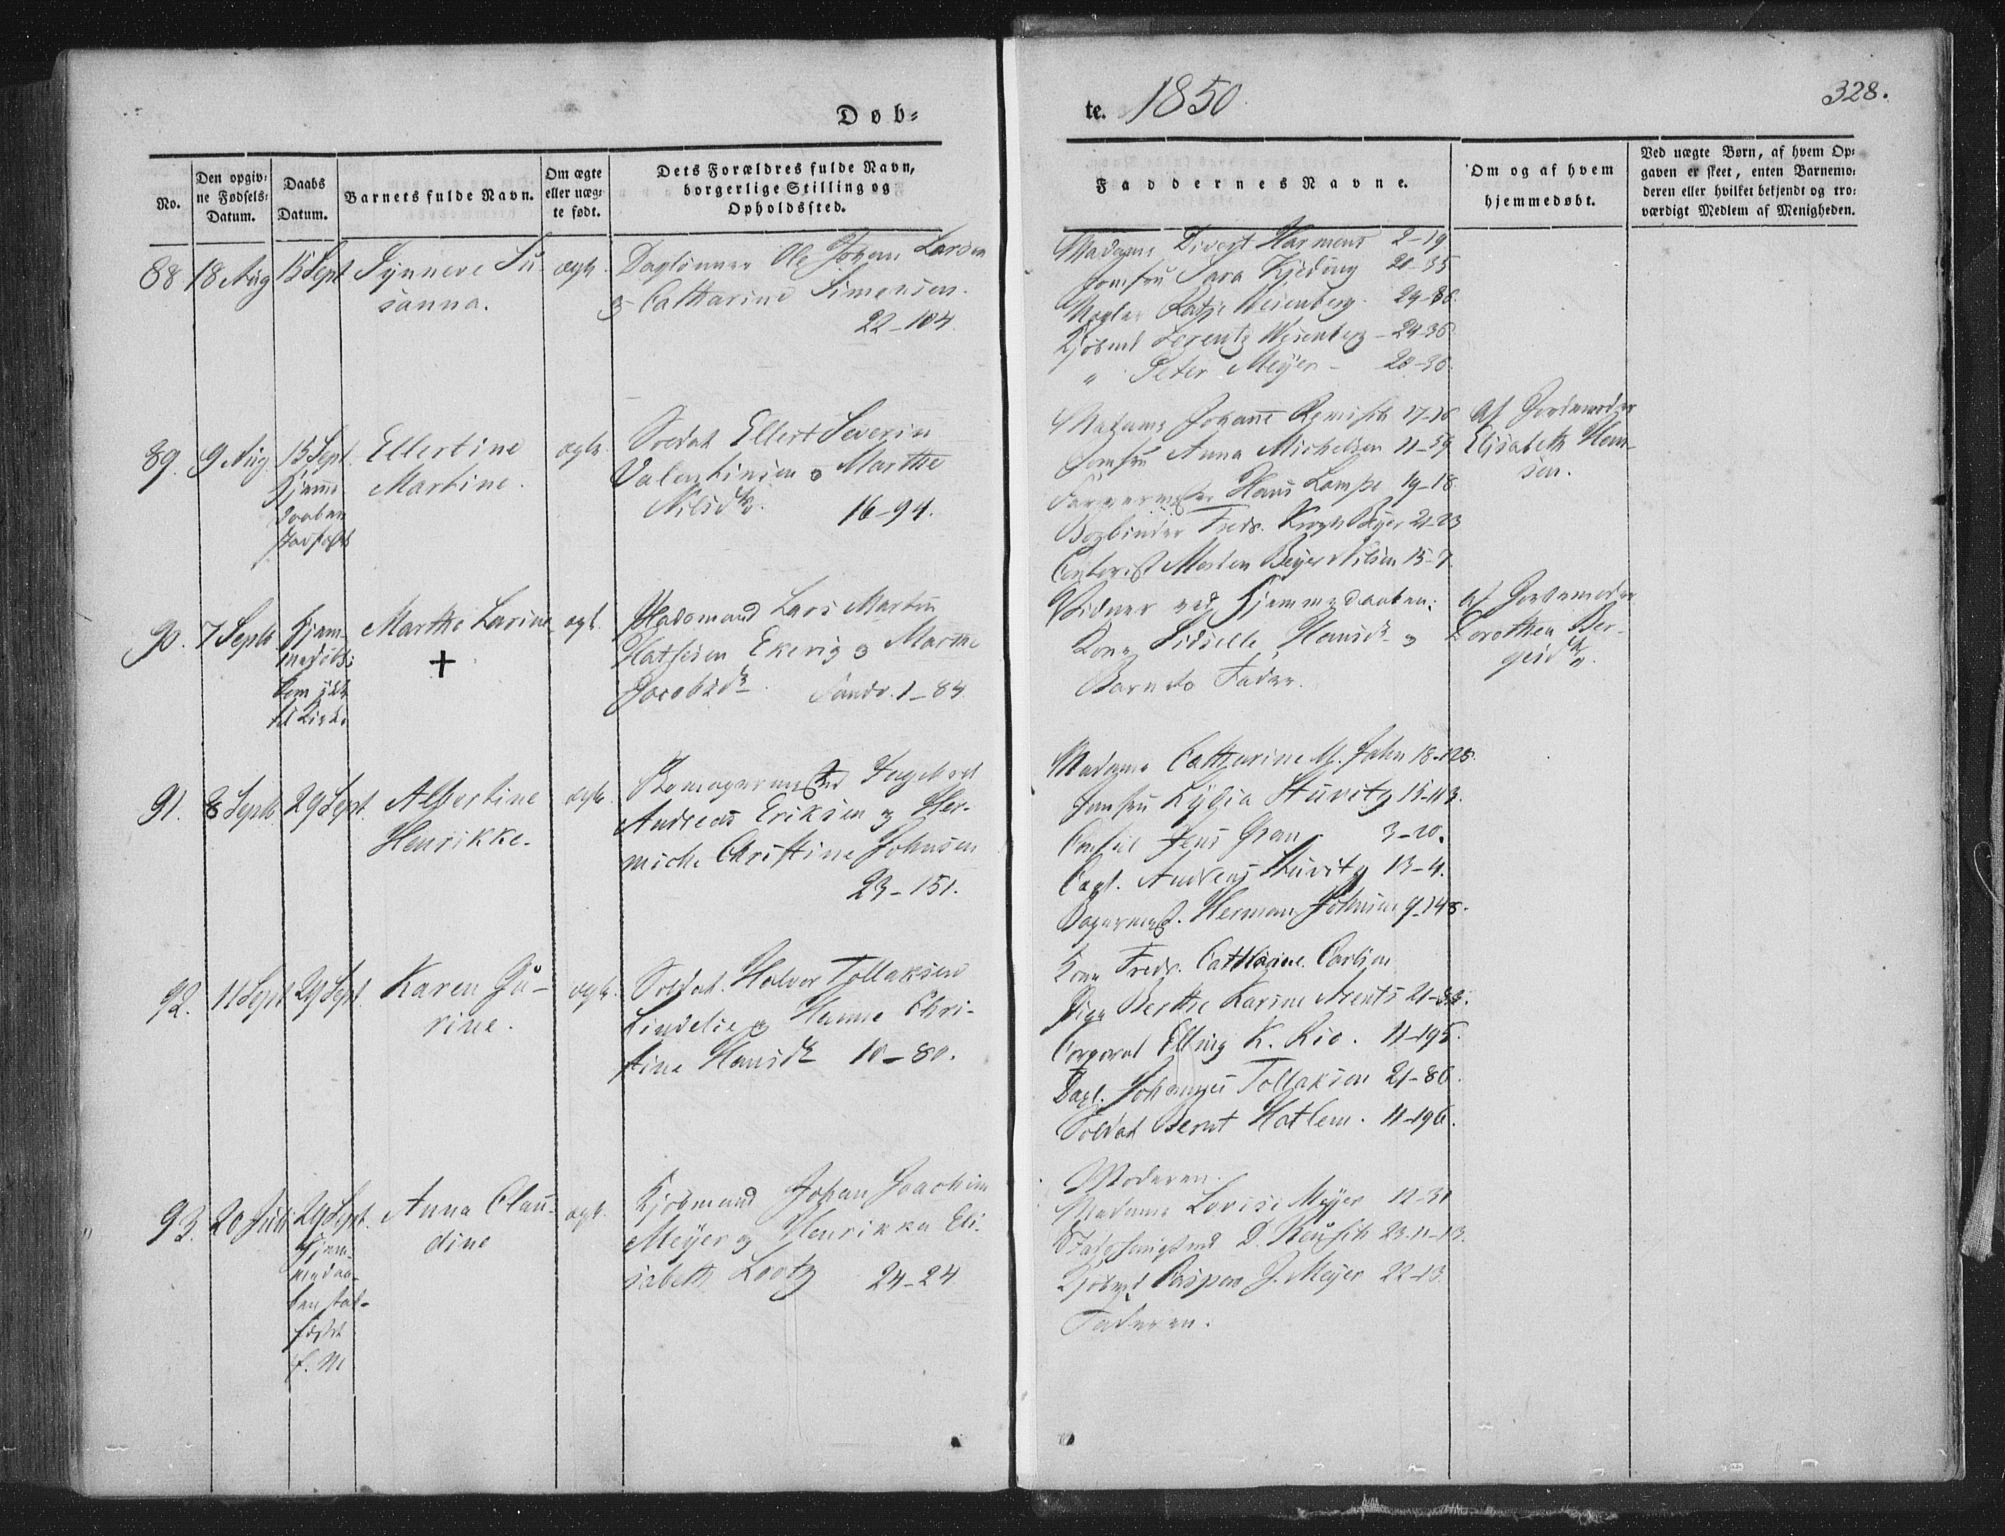 Døb=
te. 1850
328.
No.
Den opgiv=
ne Fødsels=
Datum.
Daabs
Datum.
Barnets fulde Navn.
Om ægte
eller uæg=
te født.
Dets Forældres fulde Navn,
borgerlige Stilling og
Opholdssted.
Faddernes Navne.
Om og af hvem
hjemmedøbt.
Ved uægte Børn, af hvem Op=
gaven er skeet, enten Barnemo=
deren eller hvilket bekjendt og tro=
værdigt Medlem af Menigheden.
88 18 Aug 15 Sept Synneve Su
sanna.
ægte.
Daglønner Ole Johan Larsen
& Catharine Simensen.
22-104.
Madame Divert Harmens 2-19
Jomfru Sara
Wesenberg. 24-36.
Kjøbmd Lorentz Wesenberg - 24-36
" Peter Meyer -
89. 9 Aug 15 Sept.
Hjemme
daaben
stadfæstet
Ellertine
Martine.
ægte.
Soldat Ellert Severin
Valentinsen & Marthe
Nilsdr.
16-94.
Madame Johanne
Jomfru Anna Michelsen 11-59
Farvermester Hans Lampe 19-18
Bogbinder Fredr. Krogh Beyer 21-23
Contorist Morten Beyer Nilsen 15-7
af Jordemoder
Elisabeth Han-
sen.
90. 7 Septb.
Hjem-
medøbt;
kom ikke
til Kirke
Marthe Larine
+
ægt.
Lars Martin
Mathesen Ekerig & Marthe
Jacobsdr. Sandv. 1-84
Vidner ved Hjemmedaaben:
Kone Sidselle Hansdr. &
Barnets Fader.
af Jordemoder
Dorothea Ber-
91. 8 Septb. 29 Sept. Albertine
Henrikke.
ægte.
Skomagermester Ingebret
Andreas Eriksen og Her-
miche Christine Johnsen
23-151.
Madame Catharine M. Jahn 18-128.
Jomfru Lydia Stuvitz 15-113.
Consul Jens Gran 3-20.
Capt. Andreas Stuvitz 13-4.
Bagermest. Herman Johnsen 9-148.
92. 11 Sept 29 Sept. Karen Gu-
rine.
ægte.
Soldat Halvor Tollaksen
Lindelie og Hanne Chri-
stine Hansdr 10-80.
Kone Fredr. Cathrine Carlsen
Pige Berthe Karine Arents 21-83.
Corporal Elling K. Rio. 11-195.
Dagl. Johannes Tollaksen 21-86.
Soldat Bernt Hatlem. 11-196.
93. 20 Juli 29 Sept.
Hjem-
medaa-
ben stad-
fæstet
f. M
Anna Clau-
dine
ægt.
Kjøbmand Johan Joachim
Meyer og Henrikka Eli-
sabeth Lootz 24-24
Moderen.
Madame Lovise Meyer 12-31
D.
Kjøbmd Caspar J. Meyer 22-13.
Faderen.